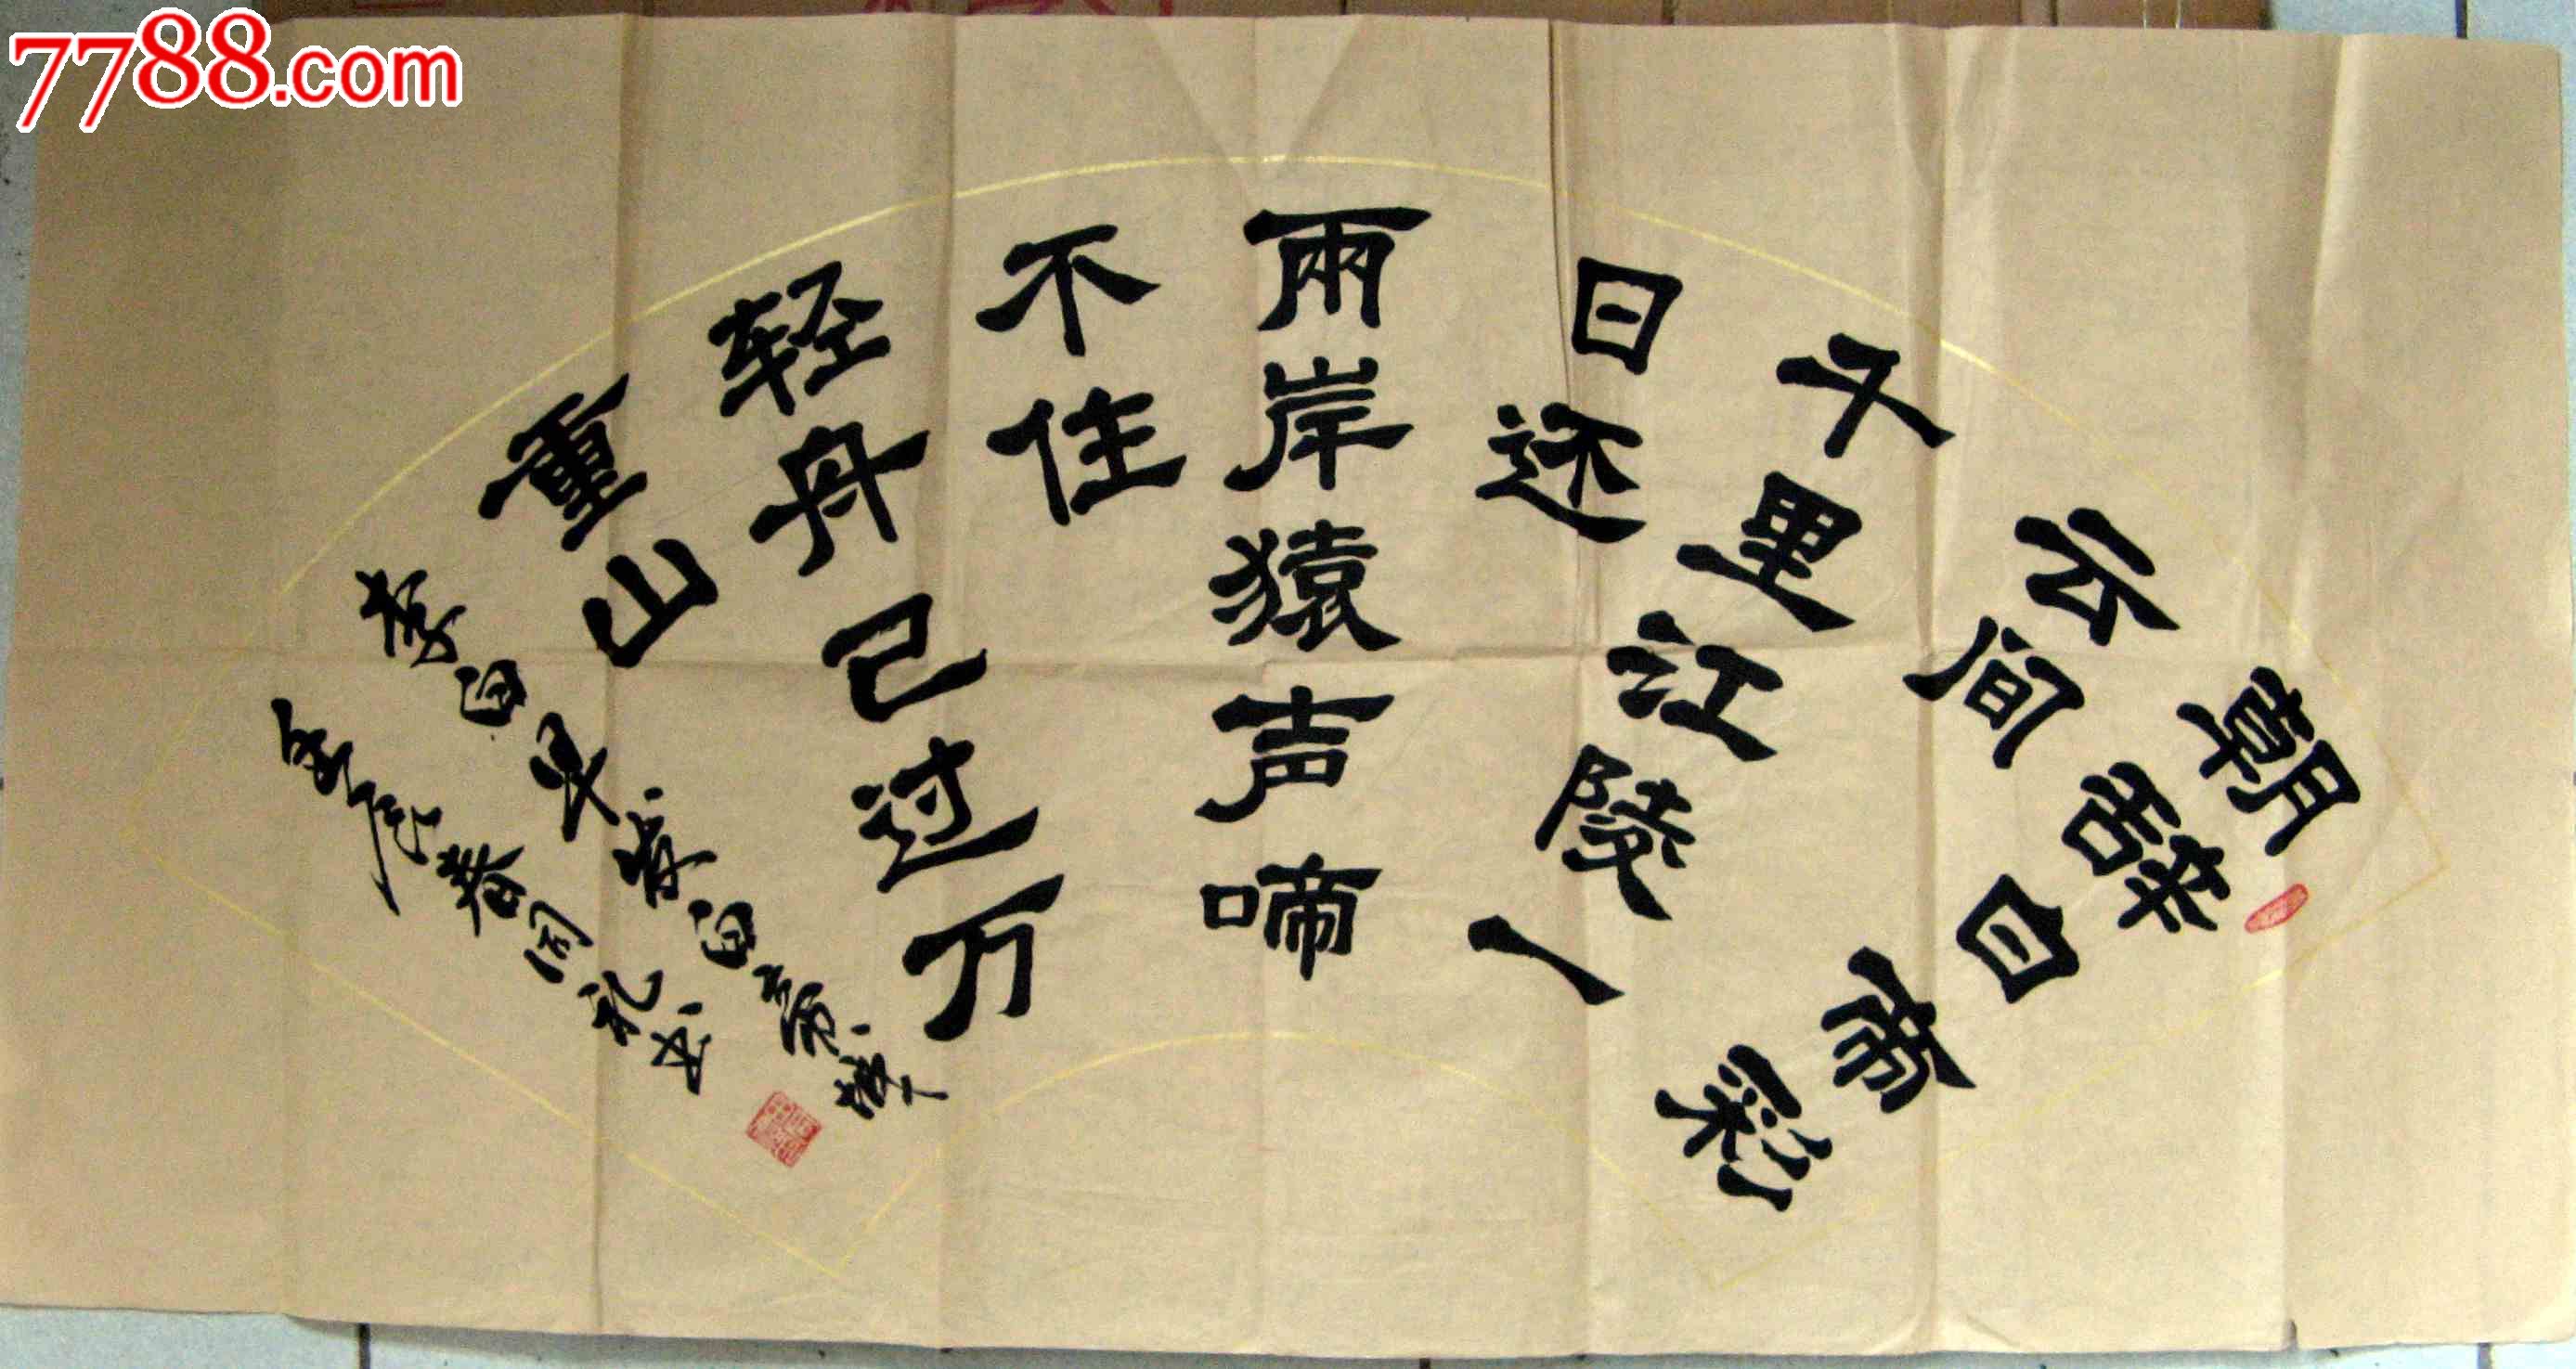 7788.com
朝辞白帝彩
云间
千里江陵一
日还
兩岸猿声啼
不住
轻舟已过万
重山
李白早发白帝城
春